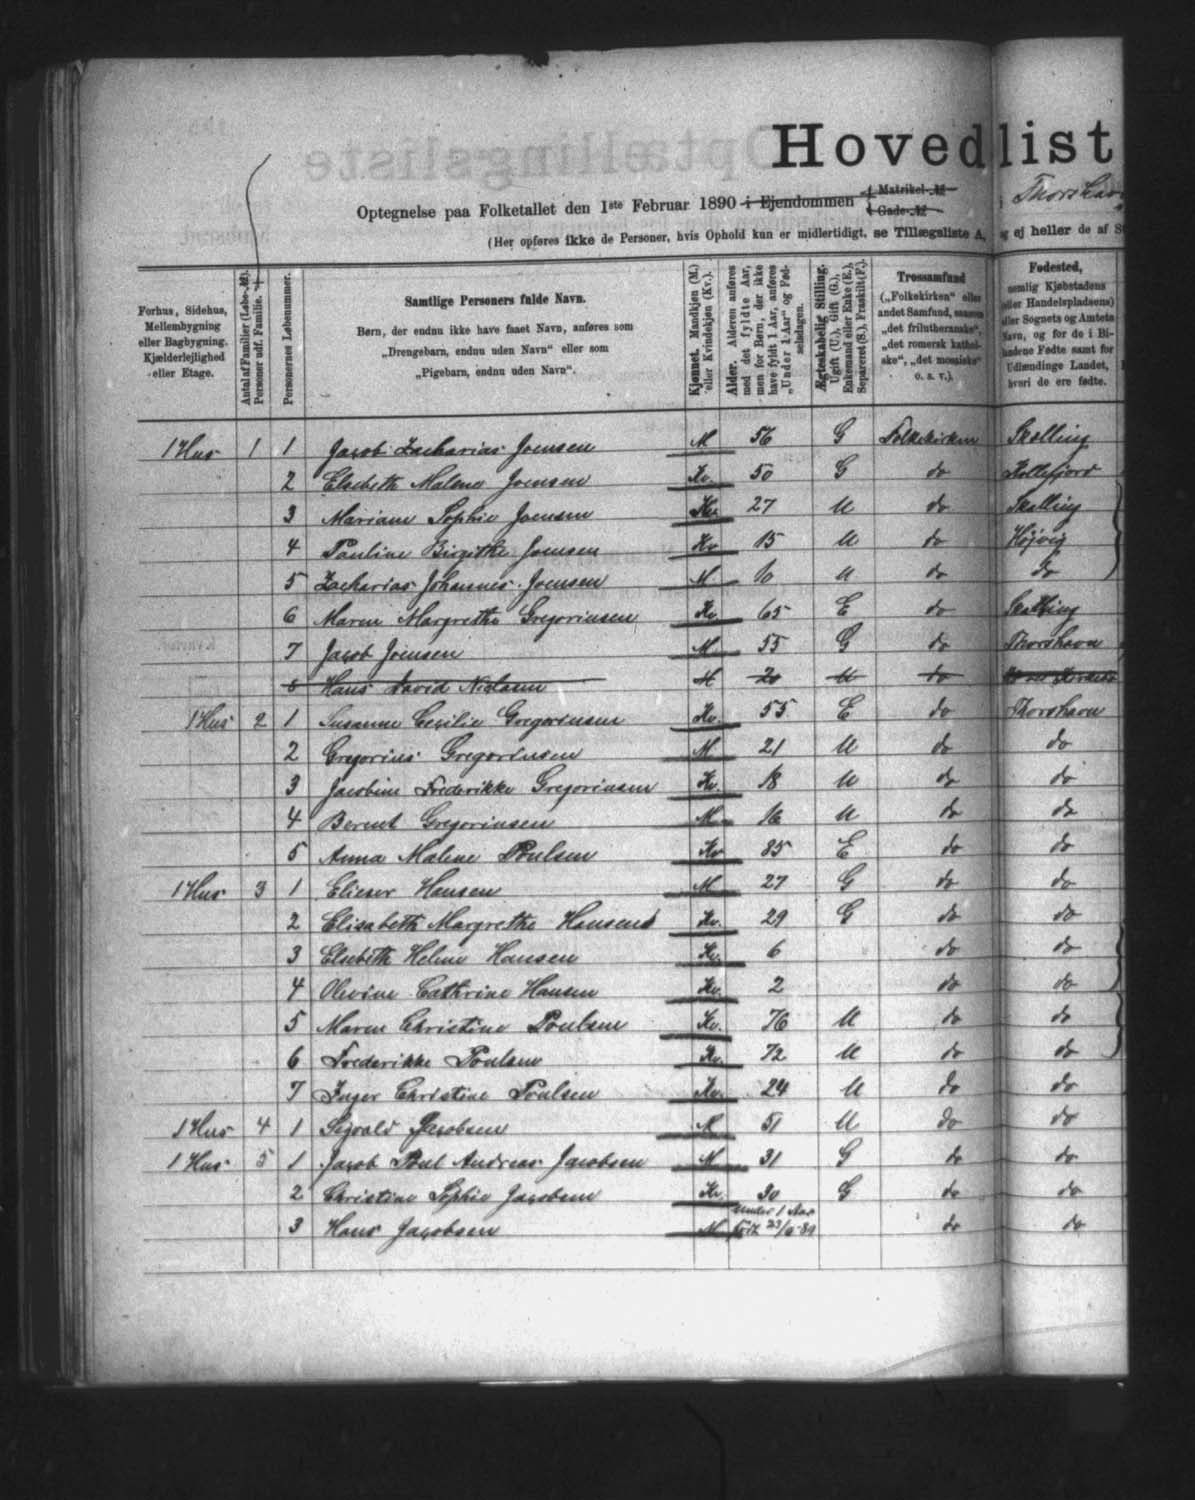 Hovedlist
Optegnelse paa Folketallet den 1ste Februar 1890 i Ejendommen Matrikel-№ Gade-№ i Thorshavn
(Her opføres ikke de Personer, hvis Ophold kun er midlertidigt, se Tillægsliste A, og ej heller de af
Forhus, Sidehus, Mellembygning eller Bagbygning. Kjælderlejlighed eller Etage.
Antal af Familier (Løbe-№). Personer udf. Familie.
Personernes Løbenummer.
Samtlige Personers fulde Navn.
Børn, der endnu ikke have faaet Navn, anføres som
„Drengebarn, endnu uden Navn“ eller som
„Pigebarn, endnu uden Navn“.
Kjønnet. Mandkjøn (M.) eller Kvindekjøn (Kv.).
Alder. Alderen anføres med det fyldte Aar, men for Børn, der ikke have fyldt 1 Aar, anføres „Under 1 Aar“ og Fødselsdagen.
Ægteskabelig Stilling. Ugift (U.), Gift (G.), Enkemand eller Enke (E.), Separeret (S.), Fraskilt (F.).
Trossamfund („Folkekirken“ eller andet Samfund, saasom „det frilutheranske“, „det romersk katholske“, „det mosaiske“ o. s. v.).
Fødested, nemlig Kjøbstadens (eller Handelspladsens) eller Sognets og Amtets Navn, og for de i Bilandene Fødte samt for Udlændinge Landet, hvori de ere fødte.
1 Hus 1 1 Jacob Zacharias Joensen M 56 G Folkekirken Skælling
2 Elsebeth Malene Joensen Kv. 50 G do Kollefjord
3 Mariane Sophie Joensen Kv 27 U do Skælling
4 Pauline Birgithe Joensen Kv 15 U do Højvig
5 Zacharias Johannes Joensen M 10 U do do
6 Maren Margrethe Gregoriusen Kv 65 E do Skælling
7 Jacob Joensen M 55 G do Thorshavn
8 Hans David Nielsen M 20 U do
1 Hus 2 1 Susanne Cecilie Gregoriusen Kv. 55 E do Thorshavn
2 Gregorius Gregoriusen M 21 U do do
3 Jacobine Frederikke Gregoriusen Kv. 18 U do do
4 Berent Gregoriusen M 16 U do do
5 Anna Malene Poulsen Kv 85 E do do
1 Hus 3 1 Elieser Hansen M 27 G do do
2 Elisabeth Margrethe Hansen Kv. 29 G do do
3 Elsebeth Helene Hansen Kv. 6 do do
4 Olevine Cathrine Hansen Kv. 2 do do
5 Maren Christine Poulsen Kv. 76 U do do
6 Frederikke Poulsen Kv. 72 U do do
7 Inger Christine Poulsen Kv. 24 U do do
1 Hus 4 1 Sigvald Jacobsen M 51 U do do
1 Hus 5 1 Jacob Poul Andreas Jacobsen M 31 G do do
2 Christine Sophie Jacobsen Kv. 30 G do do
3 Hans Jacobsen M under 1 Aar do do